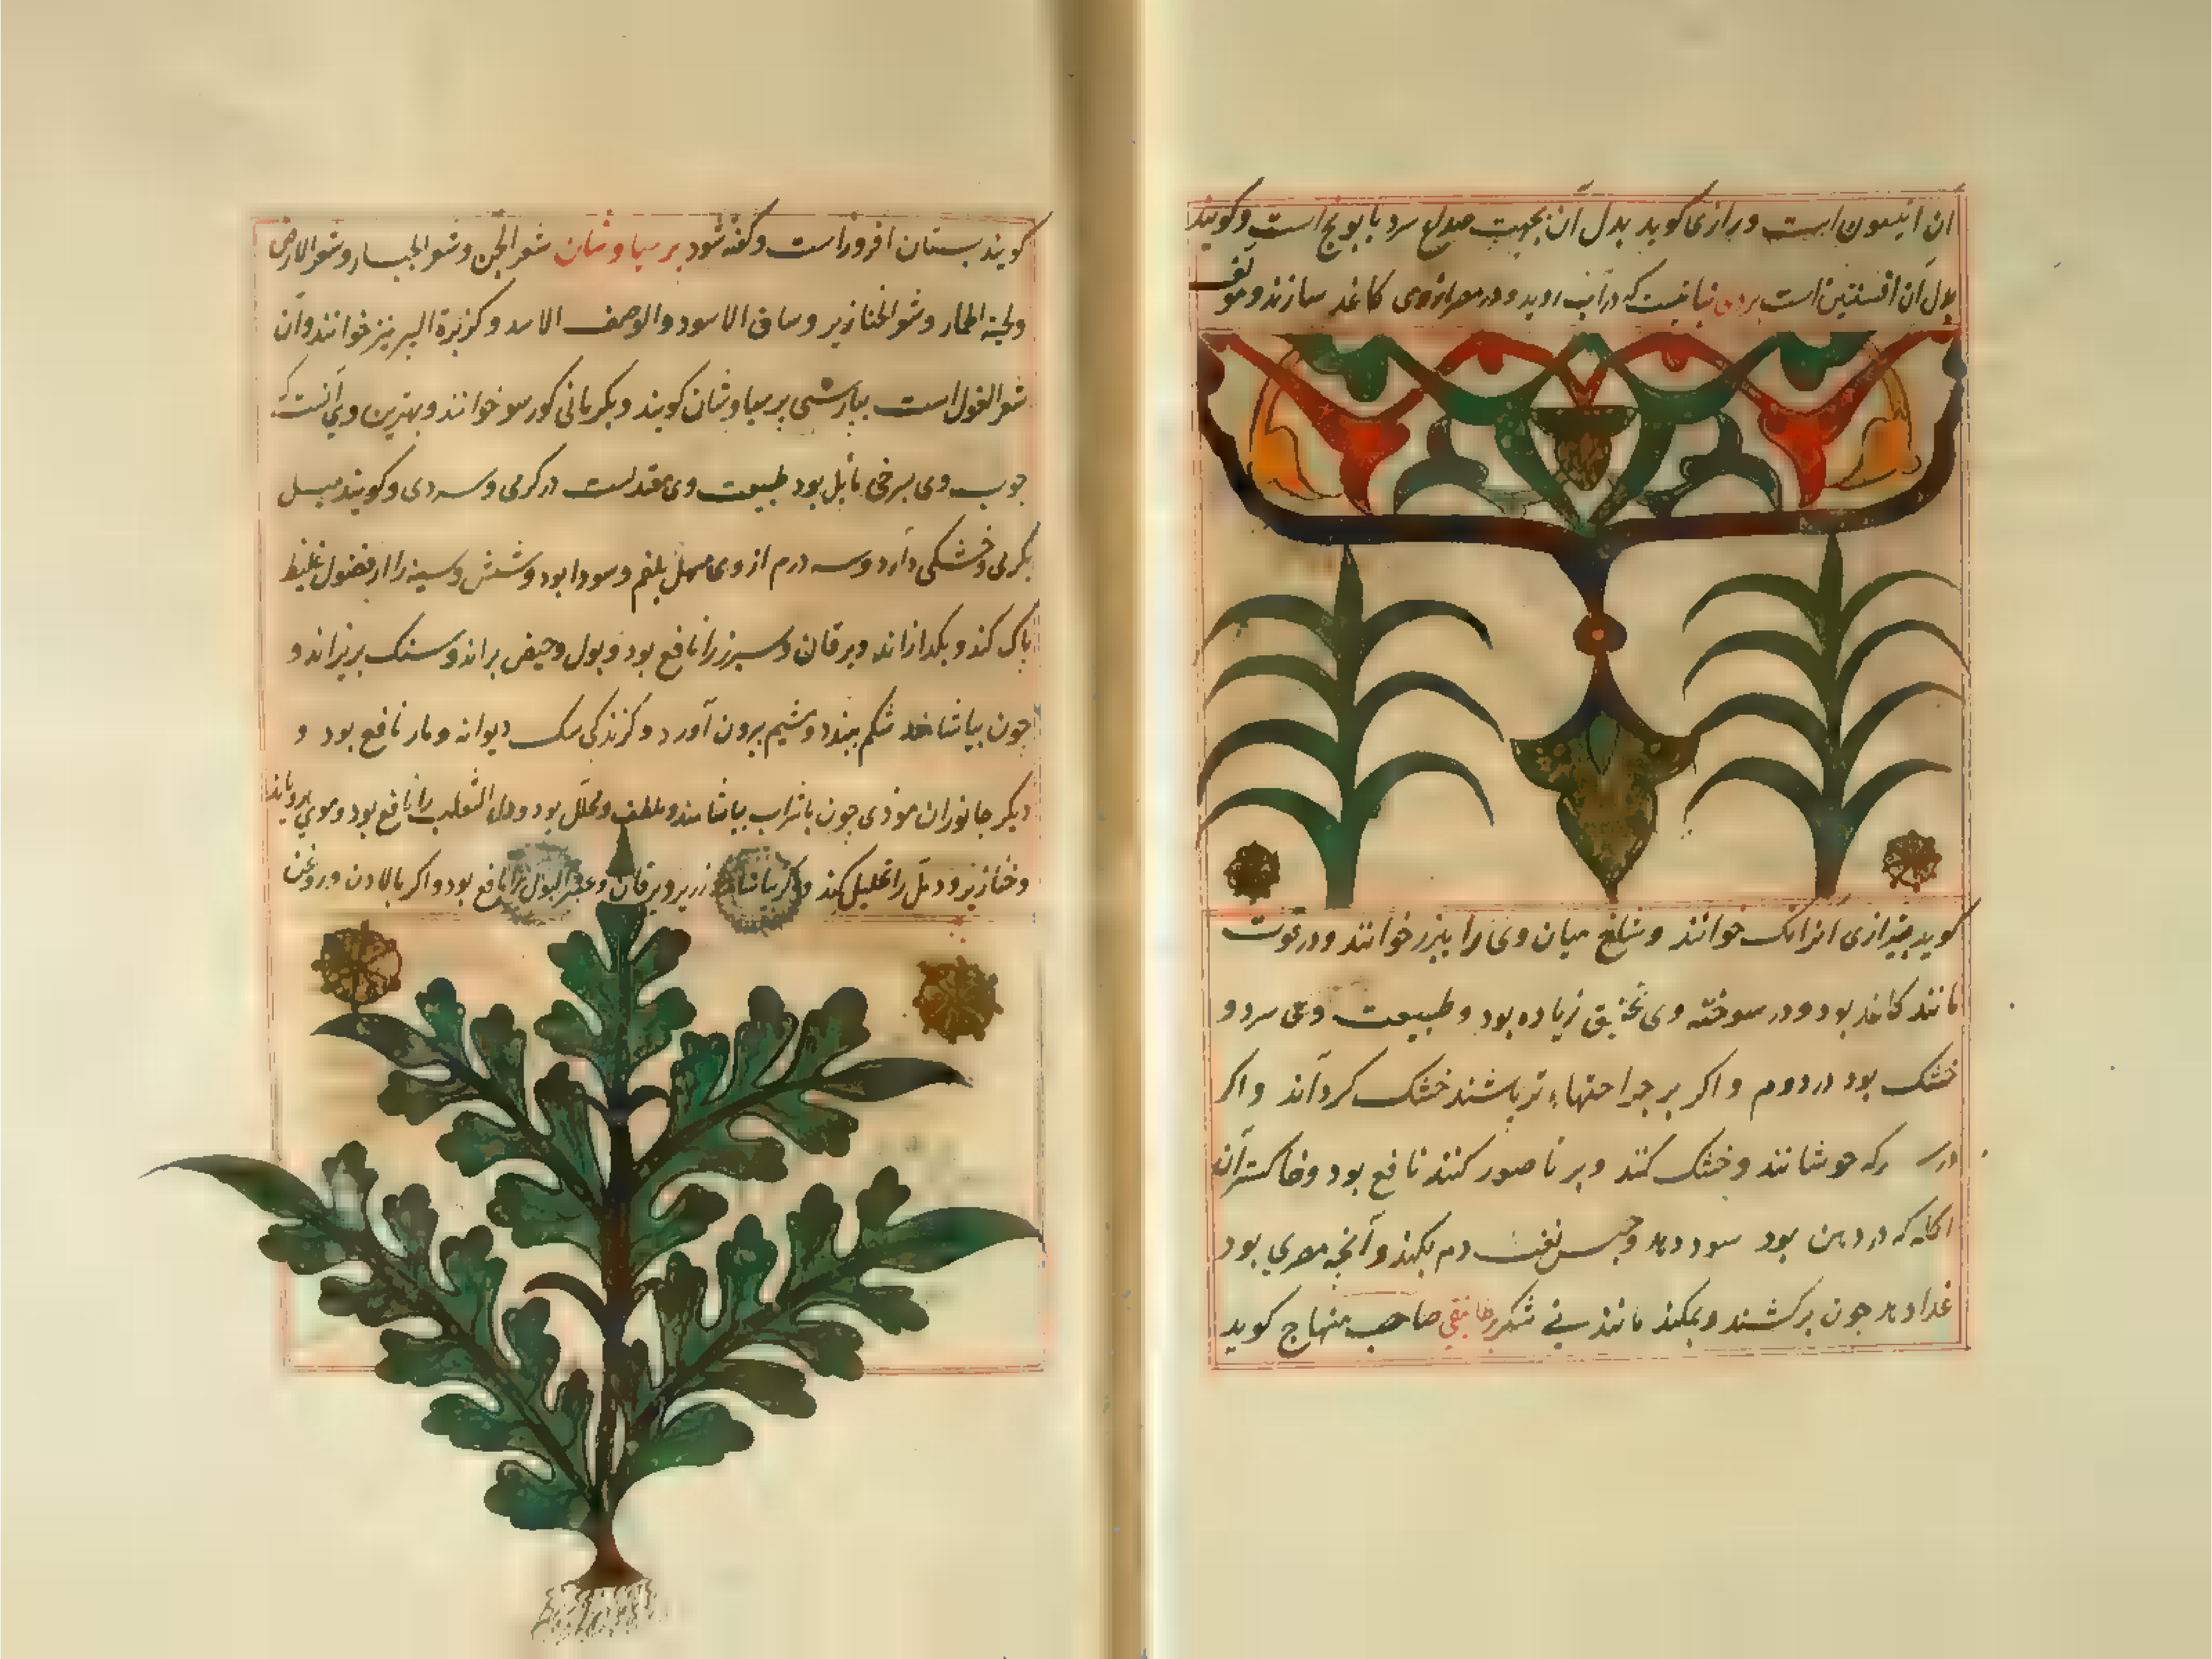 ان انیسون است و رازی کوید بدل آن بجهت صداع سرد بابونج است و کویند
بدل آن افسنتین است بردی نباتیست که در آب روید و در مصر از وی کاغد سازند و مولف
کوید بشیرازی آنرا خوانند و میان وی را نیز خوانند و در قوت
مانند کاغد بود و در سوخته وی تجفیف زیاده بود و طبیعت وی سرد و
خشک بود در دوم و اکر بر جراحتهاء تر باشند خشک کرداند و اکر
در سرکه جوشانند و خشک کنند و بر ناصور کنند نافع بود و خاکستر آن
اکله که در دهن بود سود دهد و حبس نفث دم بکند و آنچه مصری بود
غدا دهد چون برکشند و بمکند مانند نی شکر صاحب منهاج کوید
کویند بستان افروز است و کفته شود برسیاوشان شعر الجن و شعر الجبار و شعر الارض
و لحیة الحمار و شعر الخنازیر و ساق الاسود و الوصیف الاسود و کزبرة البیر نیز خوانند و آن
شعر الغول است بپارسی پرسیاوشان کویند و بکرمانی کورسو خوانند و بهترین وی آنست که
چوب وی بسرخی مایل بود طبیعت وی معتدلست در کرمی و سردی و کویند میل
بکرمی و خشکی دارد و سه درم از وی مسهل بلغم و سودا بود و شش و سینه را از فضول غلیظ
پاک کند و بکدازاند و یرقان و سپرز را نافع بود و بول و حیض براند و سنک بریزاند و
چون بیاشامند شکم ببندد و مشیمه برون آورد و کزندکی سک دیوانه و مار نافع بود و
دیکر جانوران موذی چون با شراب بیاشامند و ملطف و محلل بود و داء الثعلب را نافع بود و موی برویاند
و خنازیر و دمل را تحلیل کند و اکر بیاشامند و یرقان و عسر البول را نافع بود و اکر با لادن و روغن